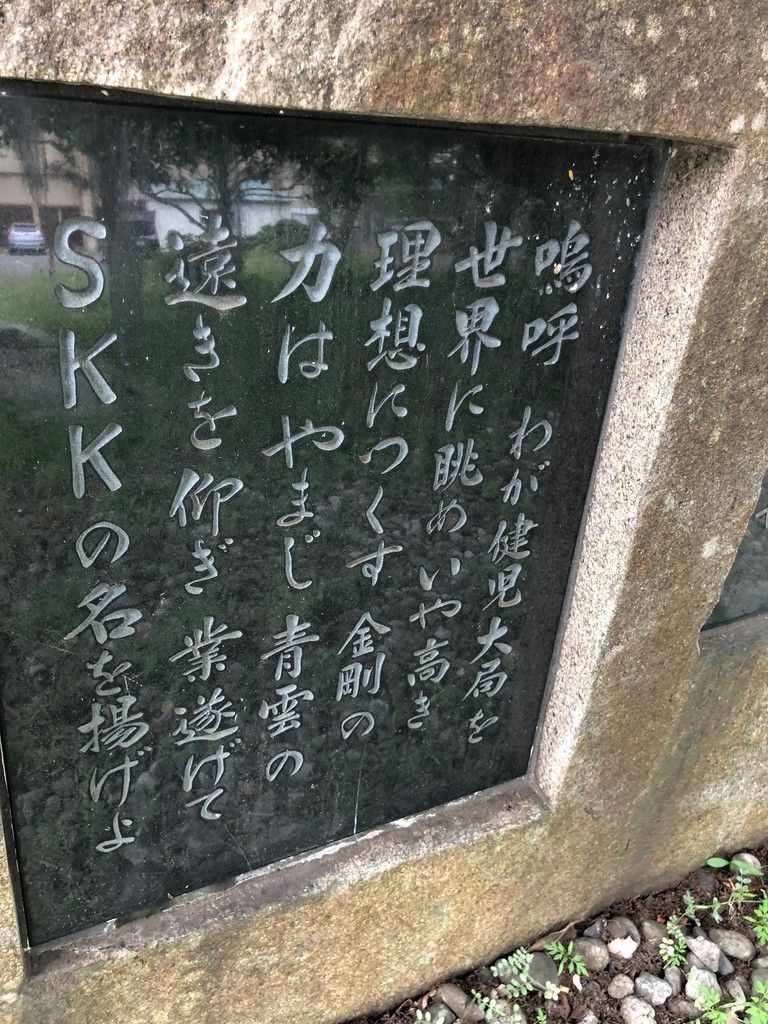 嗚呼 わが健児大局を
世界に眺め いや高き
理想につくす 金剛の
力は やまじ 青雲の
遠きを 仰ぎ 業遂げて
SKKの名を揚げよ